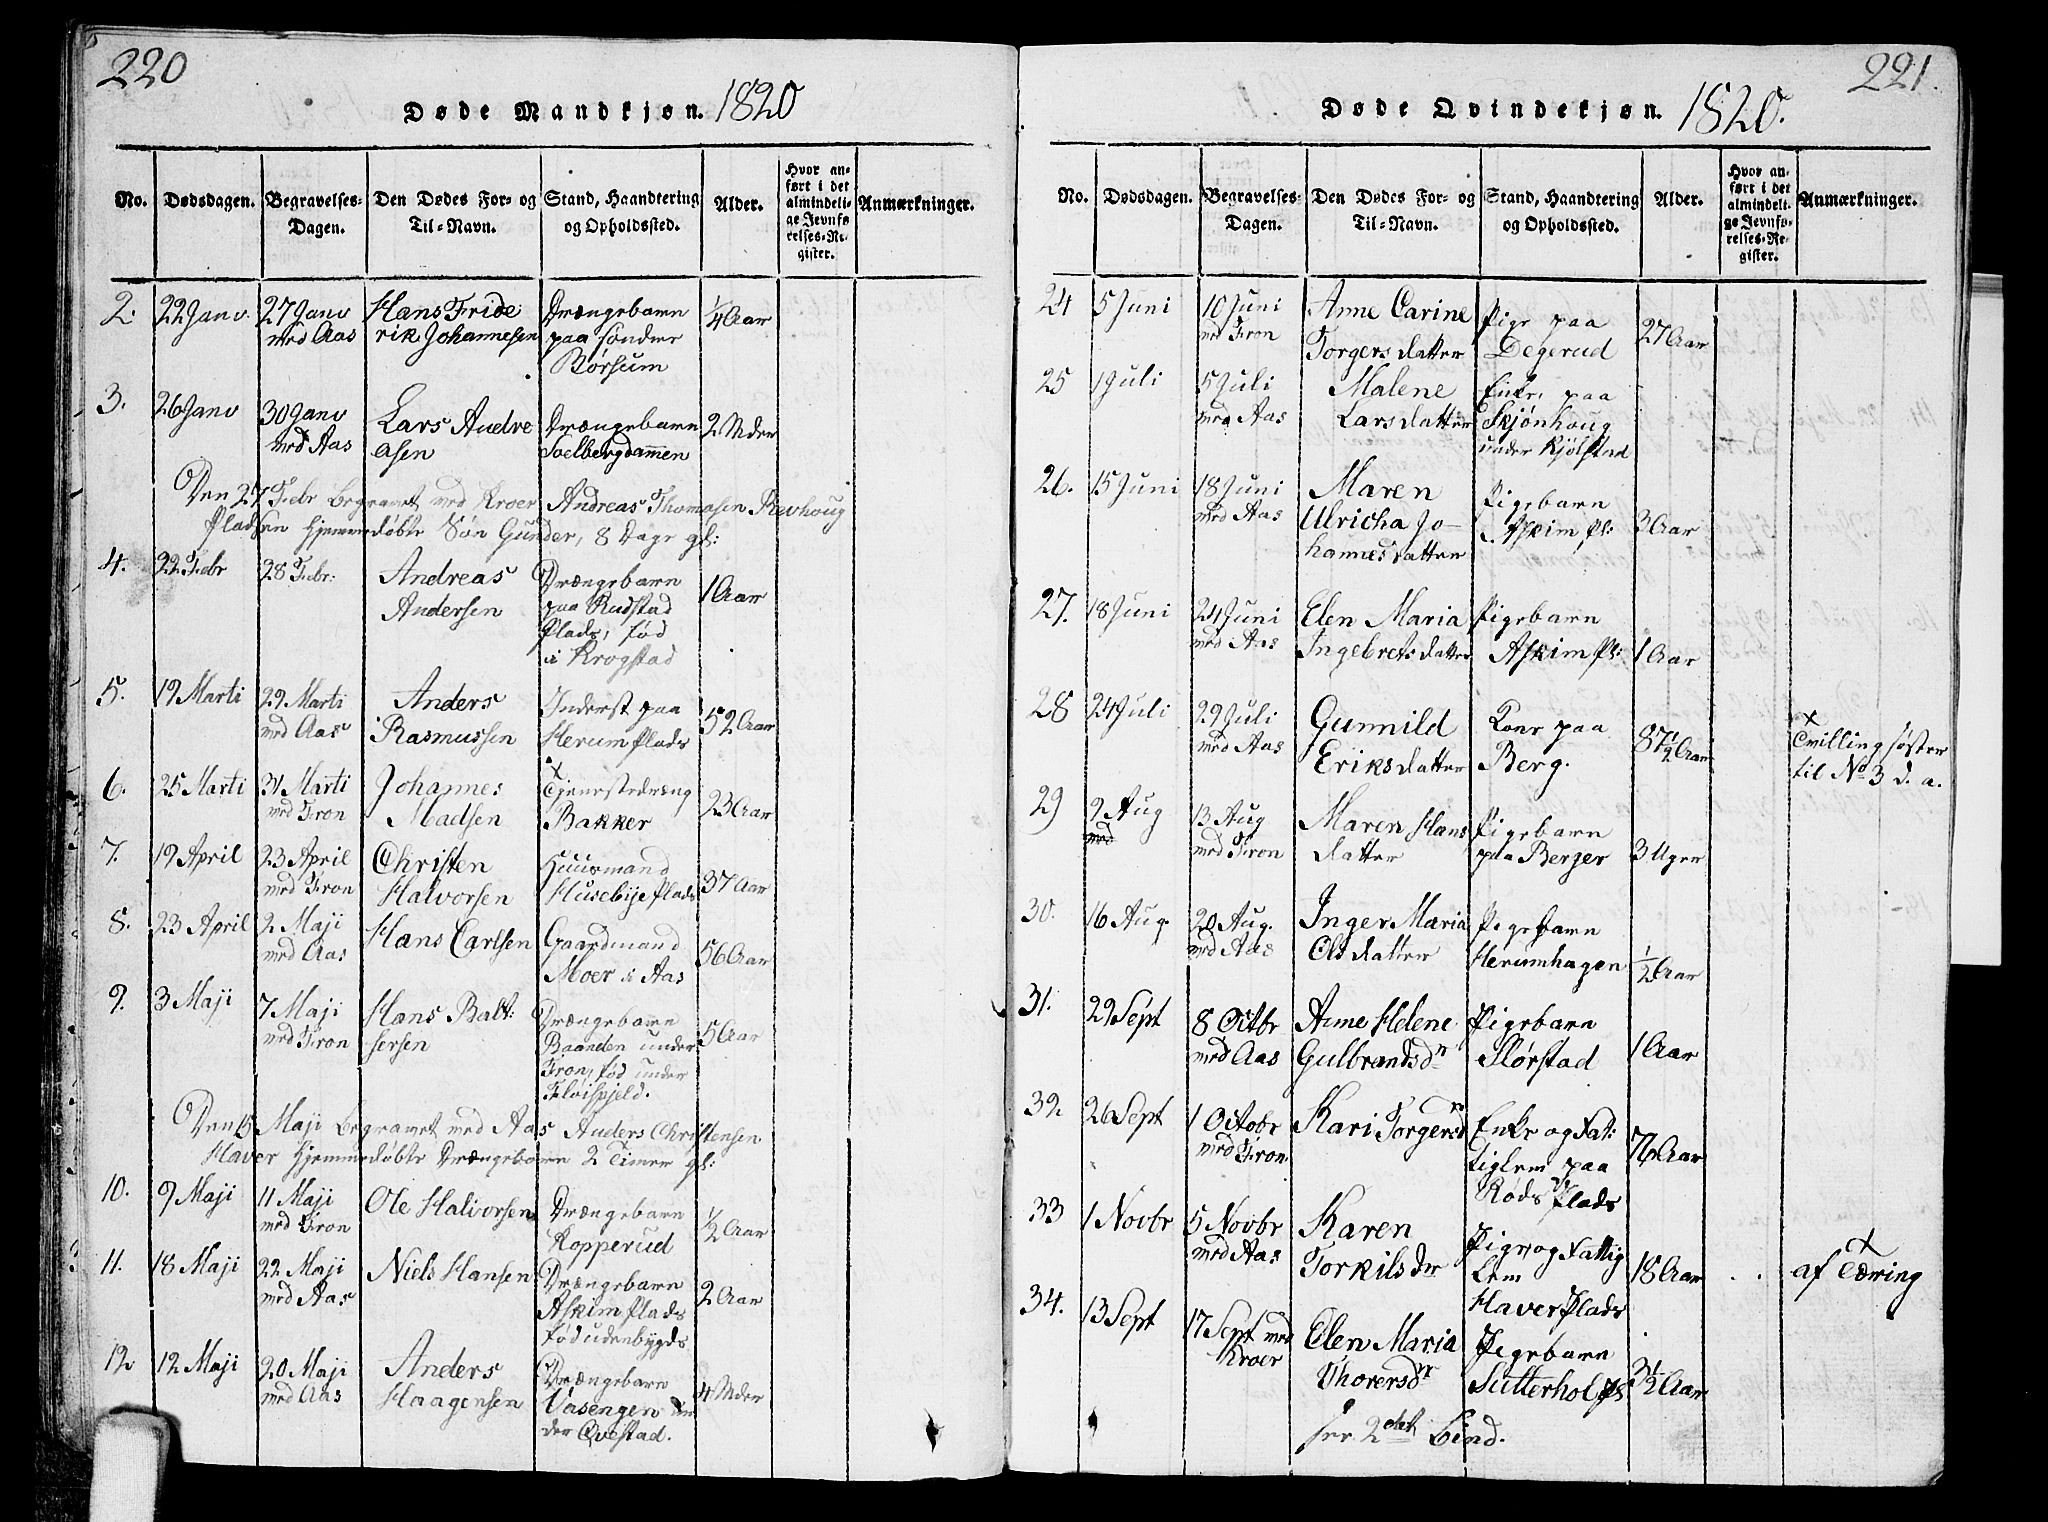 220
Døde Mandkjøn. 1820
No.
Dødsdagen.
Begravelses-
Dagen.
Den Dødes For- og
Til-Navn.
Stand, Haandtering
og Opholdssted.
Alder.
Hvor an-
ført i det
almindeli-
ge Jevnfø-
relses-Re-
gister.
Anmærkninger.
2.
22 Janv.
27 Janv
med Aas
Hans Fride
rik Johannesen
Drængebarn
paa søndre
Børsum
1/4 Aar
3.
26 Janv
30 Janv
med Aas
Lars Andre
asen
Drængebarn
Soelbergdammen
2 Mder
Den 27 Febr begravet med Kroer Andreas Thomasen Revhoug
Pladsen hjemmedøbte Søn Gunder, 8 Dage gl:
4.
22 Febr
28 Febr:
Andreas
Andersen
Drængebarn
paa Rudstad
Plads, fød
i Krogstad
1 Aar
5.
19 Marti
29 Marti
med Aas
Anders
Rasmussen
Inderst paa
Herum Plads
52 Aar
6.
25 Marti
31 Marti
med Fron
Johannes
Madsen
Tjenestedræng
Bakker
23 Aar
7.
19 April
23 April
med Fron
Christen
Halvorsen
Huusmand
Husebye Plads
37 Aar
8.
23 April
2 Maji
med Aas
Hans Carlsen
Gaardmand
Moer i Aas
56 Aar
9.
3 Maji
7 Maji
med Fron
Hans Balt:
sersen
Drængebarn
Baanden under
Fron, fød under
Fløispjeld.
5 Aar
Den 15 Maji begravet med Aas Anders Christensen
Haver hjemmedøbte Drængebarn 2 Timer gl:
10.
9 Maji
11 Maji
med Fron
Ole Halvorsen
Drængebarn
Kopperud
1/2 Aar
11.
18 Maji
22 Maji
med Aas
Niels Hansen
Drængebarn
Askim Plads
fød udenbygds
2 Aar
12
12 Maji
20 Maji
med Aas
Anders
Haagensen
Drængebarn
Vasengen un
der Qvestad.
4 Mder
221.
Døde Qvindekjøn. 1820.
No.
Dødsdagen.
Begravelses-
Dagen.
Den Dødes For- og
Til-Navn.
Stand, Haandtering
og Opholdssted.
Alder.
Hvor an-
ført i det
almindeli-
ge Jevnfø-
relses-Re-
gister.
Anmærkninger.
24
5 Juni
10 Juni
md Fron
Anne Carine
Torgersdatter
Pige paa
Degerud
27 Aar
25
1 Juli
5 Juli
med Aas
Malene
Larsdatter
Enke, paa
Skjønhoug
under Kjølstad
26.
15 Juni
18 Juni
med Aas
Maren
Ulricha Jo-
hannesdatter
Pigebarn
Askim Pl:
3 Aar
27.
18 Juni
24 Juni
med Aas
Elen Maria
Ingebretsdatter
Pigebarn
Askim Pl:
1 Aar
28
24 Juli
29 Juli
med Aas
Gunnild
Eriksdatter
Kone paa
Berg.
87 1/2 Aar
Tvillingsøster
til No 3 d. a.
29
9 Aug
med
13 Aug
med Fron
Maren Hans
datter
Pigebarn
paa Berger
3 Uger
30.
16 Aug.
20 Aug.
med Aas
Inger Maria
Olsdatter
Pigebarn
Herumhagen
1/2 Aar
31.
29 Sept
8 Octbr
med Aas
Anne Helene
Gulbrandsdr
Pigebarn
Slørstad
1 Aar
32
26 Sept
1 Octobr
med Fron
Kari Torgersdr
Enke og Fat:
tiglem paa
Røds Plads
76 Aar
33
1 Novbr
5 Novbr
med Aas
Karen
Torkilsdr
Pige og Fattig
Lem
Haver Plads
18 Aar
af Tæring
34.
13 Sept
17 Sept med
Kroer
Elen Maria
Thorersdr
Pigebarn
Sutterhol pl:
3 1/2 Aar
see 2det Bind.